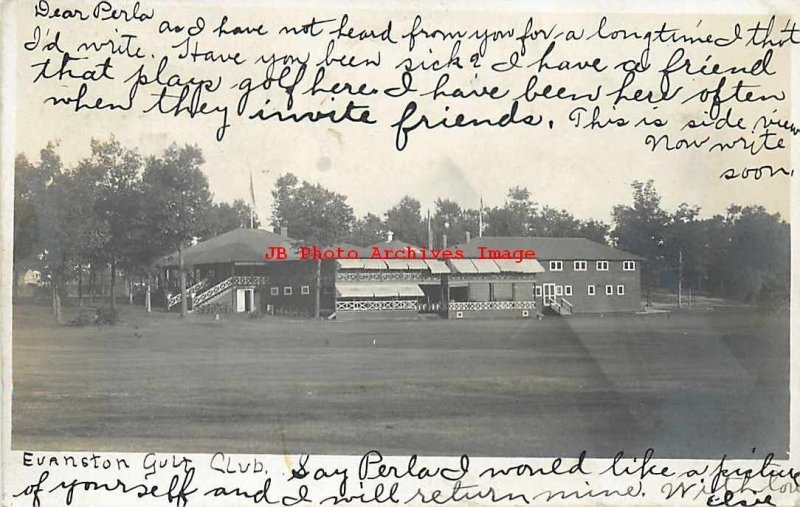 Dear Perla
as I have not heard from you for a long time I th't
I'd write. Have you been sick? I have a friend
that plays golf here. I have been here often
when they invite friends. This is side view
Now write
soon.
JB Postcards-Archive Image
Evanston Gulf Club. Say Perla I would like a picture
of yourself and I will return mine. With love
Elsie